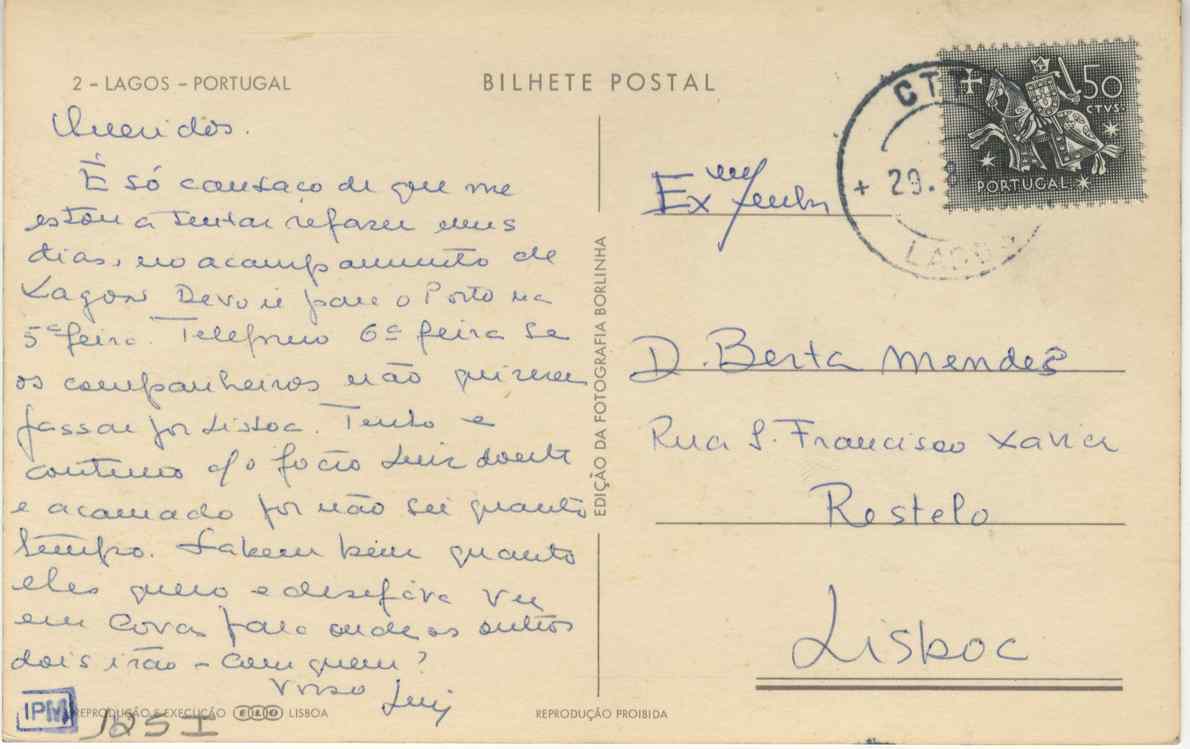 2 – LAGOS – PORTUGAL
BILHETE POSTAL
Queridos.
É só cansaço de que me
estou a tentar refazer uns
dias, no acampamento de
Lagos. Devo ir para o Porto na
5ª feira. Telefono 6ª feira se
os companheiros não quizerem
passar por Lisboa. Tenho e
continuo c/ o João Luiz doente
e acamado por não sei quanto
tempo. Sabem bem quanto
eles quero e desejava ver
em Covas para onde os outros
dois irão – Com quem?
Vosso Luiz
EDIÇÃO DA FOTOGRAFIA BORLINHA
CTT
50
CTVS.
PORTUGAL
+ 29.
LAGOS
Exma Senhora
D. Berta Mendes
Rua S. Francisco Xavier
Restelo
Lisboa
IPM
REPRODUÇÃO E EXECUÇÃO
LISBOA
REPRODUÇÃO PROIBIDA
125 I